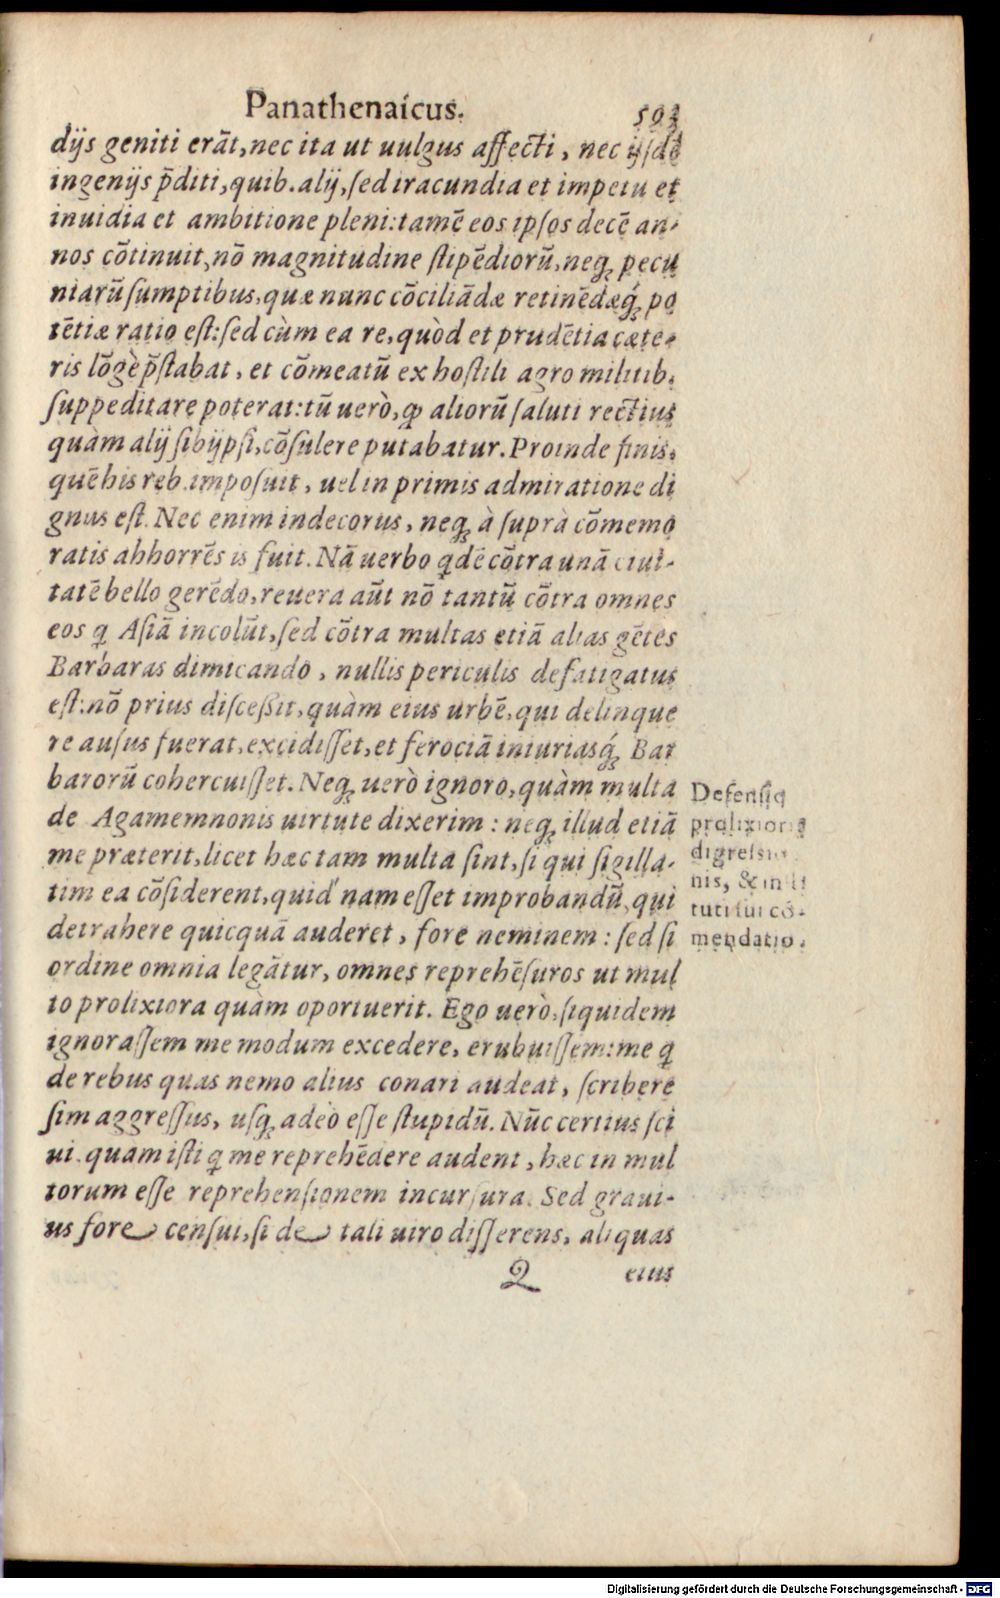 Panathenaicus. 593
dijs geniti erãt, nec ita ut uulgus affecti, nec ijsdẽ
ingenijs p̃diti, quib. alij, sed iracundia et impetu et
inuidia et ambitione pleni: tamẽ eos ipsos decẽ an-
nos cõtinuit, nõ magnitudine stipẽdiorũ, neq; pecu
niarũ sumptibus, quæ nunc cõciliãdæ retinẽdæq́; po
tẽtiæ ratio est: sed cùm ea re, quòd et prudẽtia cæte-
ris lõgè p̃stabat, et cõmeatũ ex hostili agro militib.
suppeditare poterat: tũ uerò, ꝙ aliorũ saluti rectius
quàm alij sibijpsi, cõsulere putabatur. Proinde finis,
quẽ his reb. imposuit, uel in primis admiratione di
gnus est. Nec enim indecorus, neq; à suprà cõmemo
ratis abhorrẽs is fuit. Nã uerbo q̃dẽ cõtra unã ciui-
tatẽ bello gerẽdo, reuera aũt nõ tantũ cõtra omnes
eos q̃ Asiã incolũt, sed cõtra multas etiã alias gẽtes
Barbaras dimicando, nullis periculis defatigatus
est: nõ prius disceßit, quàm eius urbẽ, qui delinque
re ausus fuerat, excidisset, et ferociã iniuriasq́; Bar
barorũ cohercuisset. Neq; uerò ignoro, quàm multa
de Agamemnonis uirtute dixerim: neq; illud etiã
me præterit, licet hæc tam multa sint, si qui sigilla-
tim ea cõsiderent, quid nam esset improbandũ, qui
detrahere quicquã auderet, fore neminem: sed si
ordine omnia legãtur, omnes reprehẽsuros ut mul
to prolixiora quàm oportuerit. Ego uerò, siquidem
ignorassem me modum excedere, erubuissem: me q̃
de rebus quas nemo alius conari audeat, scribere
sim aggressus, usq; adeò esse stupidũ. Nũc certius sci
ui. quam isti q̃ me reprehẽdere audent, hæc in mul
torum esse reprehensionem incursura. Sed graui-
us fore censui, si de tali uiro disserens, aliquas
Q eius
Defensio
prolixioris
digressio
nis, & insti
tuti sui cõ-
mendatio.
Digitalisierung gefördert durch die Deutsche Forschungsgemeinschaft - DFG